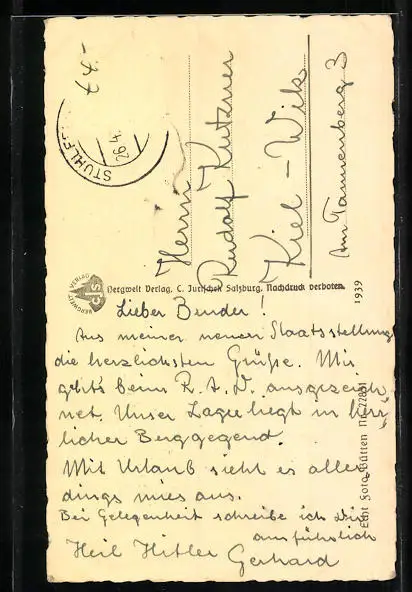 7.-
STUHLF
26.4.
Herrn
Rudolf Kutzner
Kiel-Wik
Am Tannenberg 3
BERGWELT VERLAG
CJS
Bergwelt Verlag, C. Jurischek Salzburg. Nachdruck verboten.
1939
Echt Foto Bütten
Lieber Bruder!
Aus meiner neuen Staatsstellung
die herzlichsten Grüße. Mir
geht's beim R.A.D. ausgezeich-
net. Unser Lager liegt in herr-
licher Berggegend.
Mit Urlaub sieht es aller-
dings mies aus.
Bei Gelegenheit schreibe ich Dir
ausführlich
Heil Hitler Gerhard